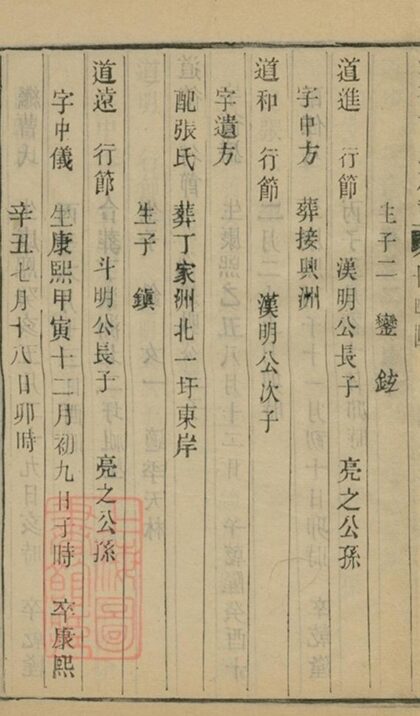 生子二 鑾 鉉
道進 行節 漢明公長子 亮之公孫
字中方 葬接興洲
道和 行節 漢明公次子
字遺方
配張氏 葬丁家洲北一圩東岸
生子 鎮
道遠 行節 斗明公長子 亮之公孫
字中儀 生康熙甲寅十二月初九日子時 卒康熙
辛丑七月十八日卯時